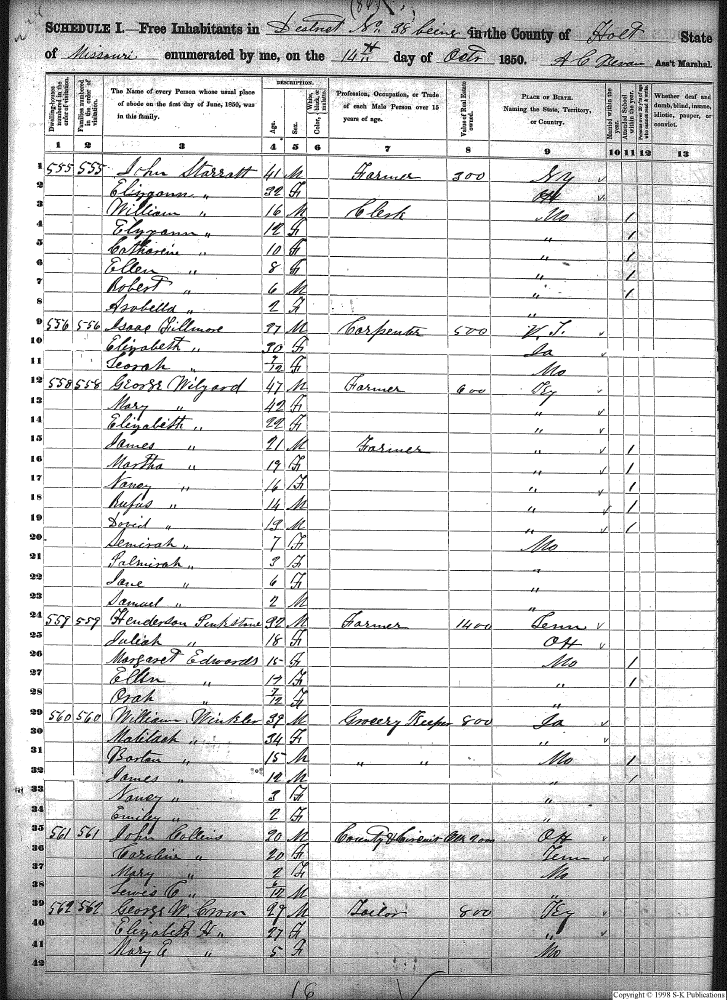 SCHEDULE I.—Free Inhabitants in District No 38 being in the County of Holt State
of Missouri enumerated by me, on the 14th day of Octr 1850. A C Ass't Marshal.
DESCRIPTION.
Dwelling-houses numbered in the order of visitation.
Families numbered in the order of visitation.
The Name of every Person whose usual place of abode on the first day of June, 1850, was in this family.
Age.
Sex.
Color, White, black, or mulatto.
Profession, Occupation, or Trade of each Male Person over 15 years of age.
Value of Real Estate owned.
PLACE OF BIRTH. Naming the State, Territory, or Country.
Married within the year.
Attended School within the year.
Whether deaf and dumb, blind, insane, idiotic, pauper, or convict.
1 2 3 4 5 6 7 8 9 10 11 12 13
1 555 555 John Starratt 41 M Farmer 300 NY
2 " 32 F
3 William " 16 M Clerk Mo 1
4 " 12 F " 1
5 Catharine " 10 F " 1
6 Ellen " 8 F " 1
7 Robert " 6 M " 1
8 Arabella " 2 F "
9 556 556 Isaac Fillmore 27 M Carpenter 500
10 Elizabeth " 20 F Ia
11 F Mo
12 558 558 George Wilyard 47 M Farmer 600 Ky
13 Mary " 42 F "
14 Elizabeth " 22 F "
15 James " 21 M Farmer " 1
16 Martha " 19 F " 1
17 Nancy " 16 F " 1
18 Rufus " 14 M " 1
19 David " 13 M " 1
20 Semirah " 7 F Mo
21 Palmirah " 3 F "
22 Jane " 6 F "
23 Samuel " 2 M "
24 559 559 Henderson 32 M Farmer 1400 Tenn
25 Juliah " 18 F OH
26 Margaret Edwards 15 F Mo 1
27 Ellen " F " 1
28 Orah " 7/12 F "
29 560 560 William Winkler 39 M Grocery Keeper 800 Ia
30 Matildah " 34 F "
31 Barton " 15 M " " Mo 1
32 James " 12 M " 1
33 Nancy " 3 F "
34 Emiley " 2 F "
35 561 561 John Collins 20 M County & Circuit 2000 OH
36 Caroline " 20 F Tenn
37 Mary " 2 F Mo
38 Lewis C " M "
39 562 562 George W. Crow 29 M Tailor 800 Ky
40 Elizabeth H " 27 F "
41 Mary E " 5 F Mo
42
Copyright © 1998 S-K Publications